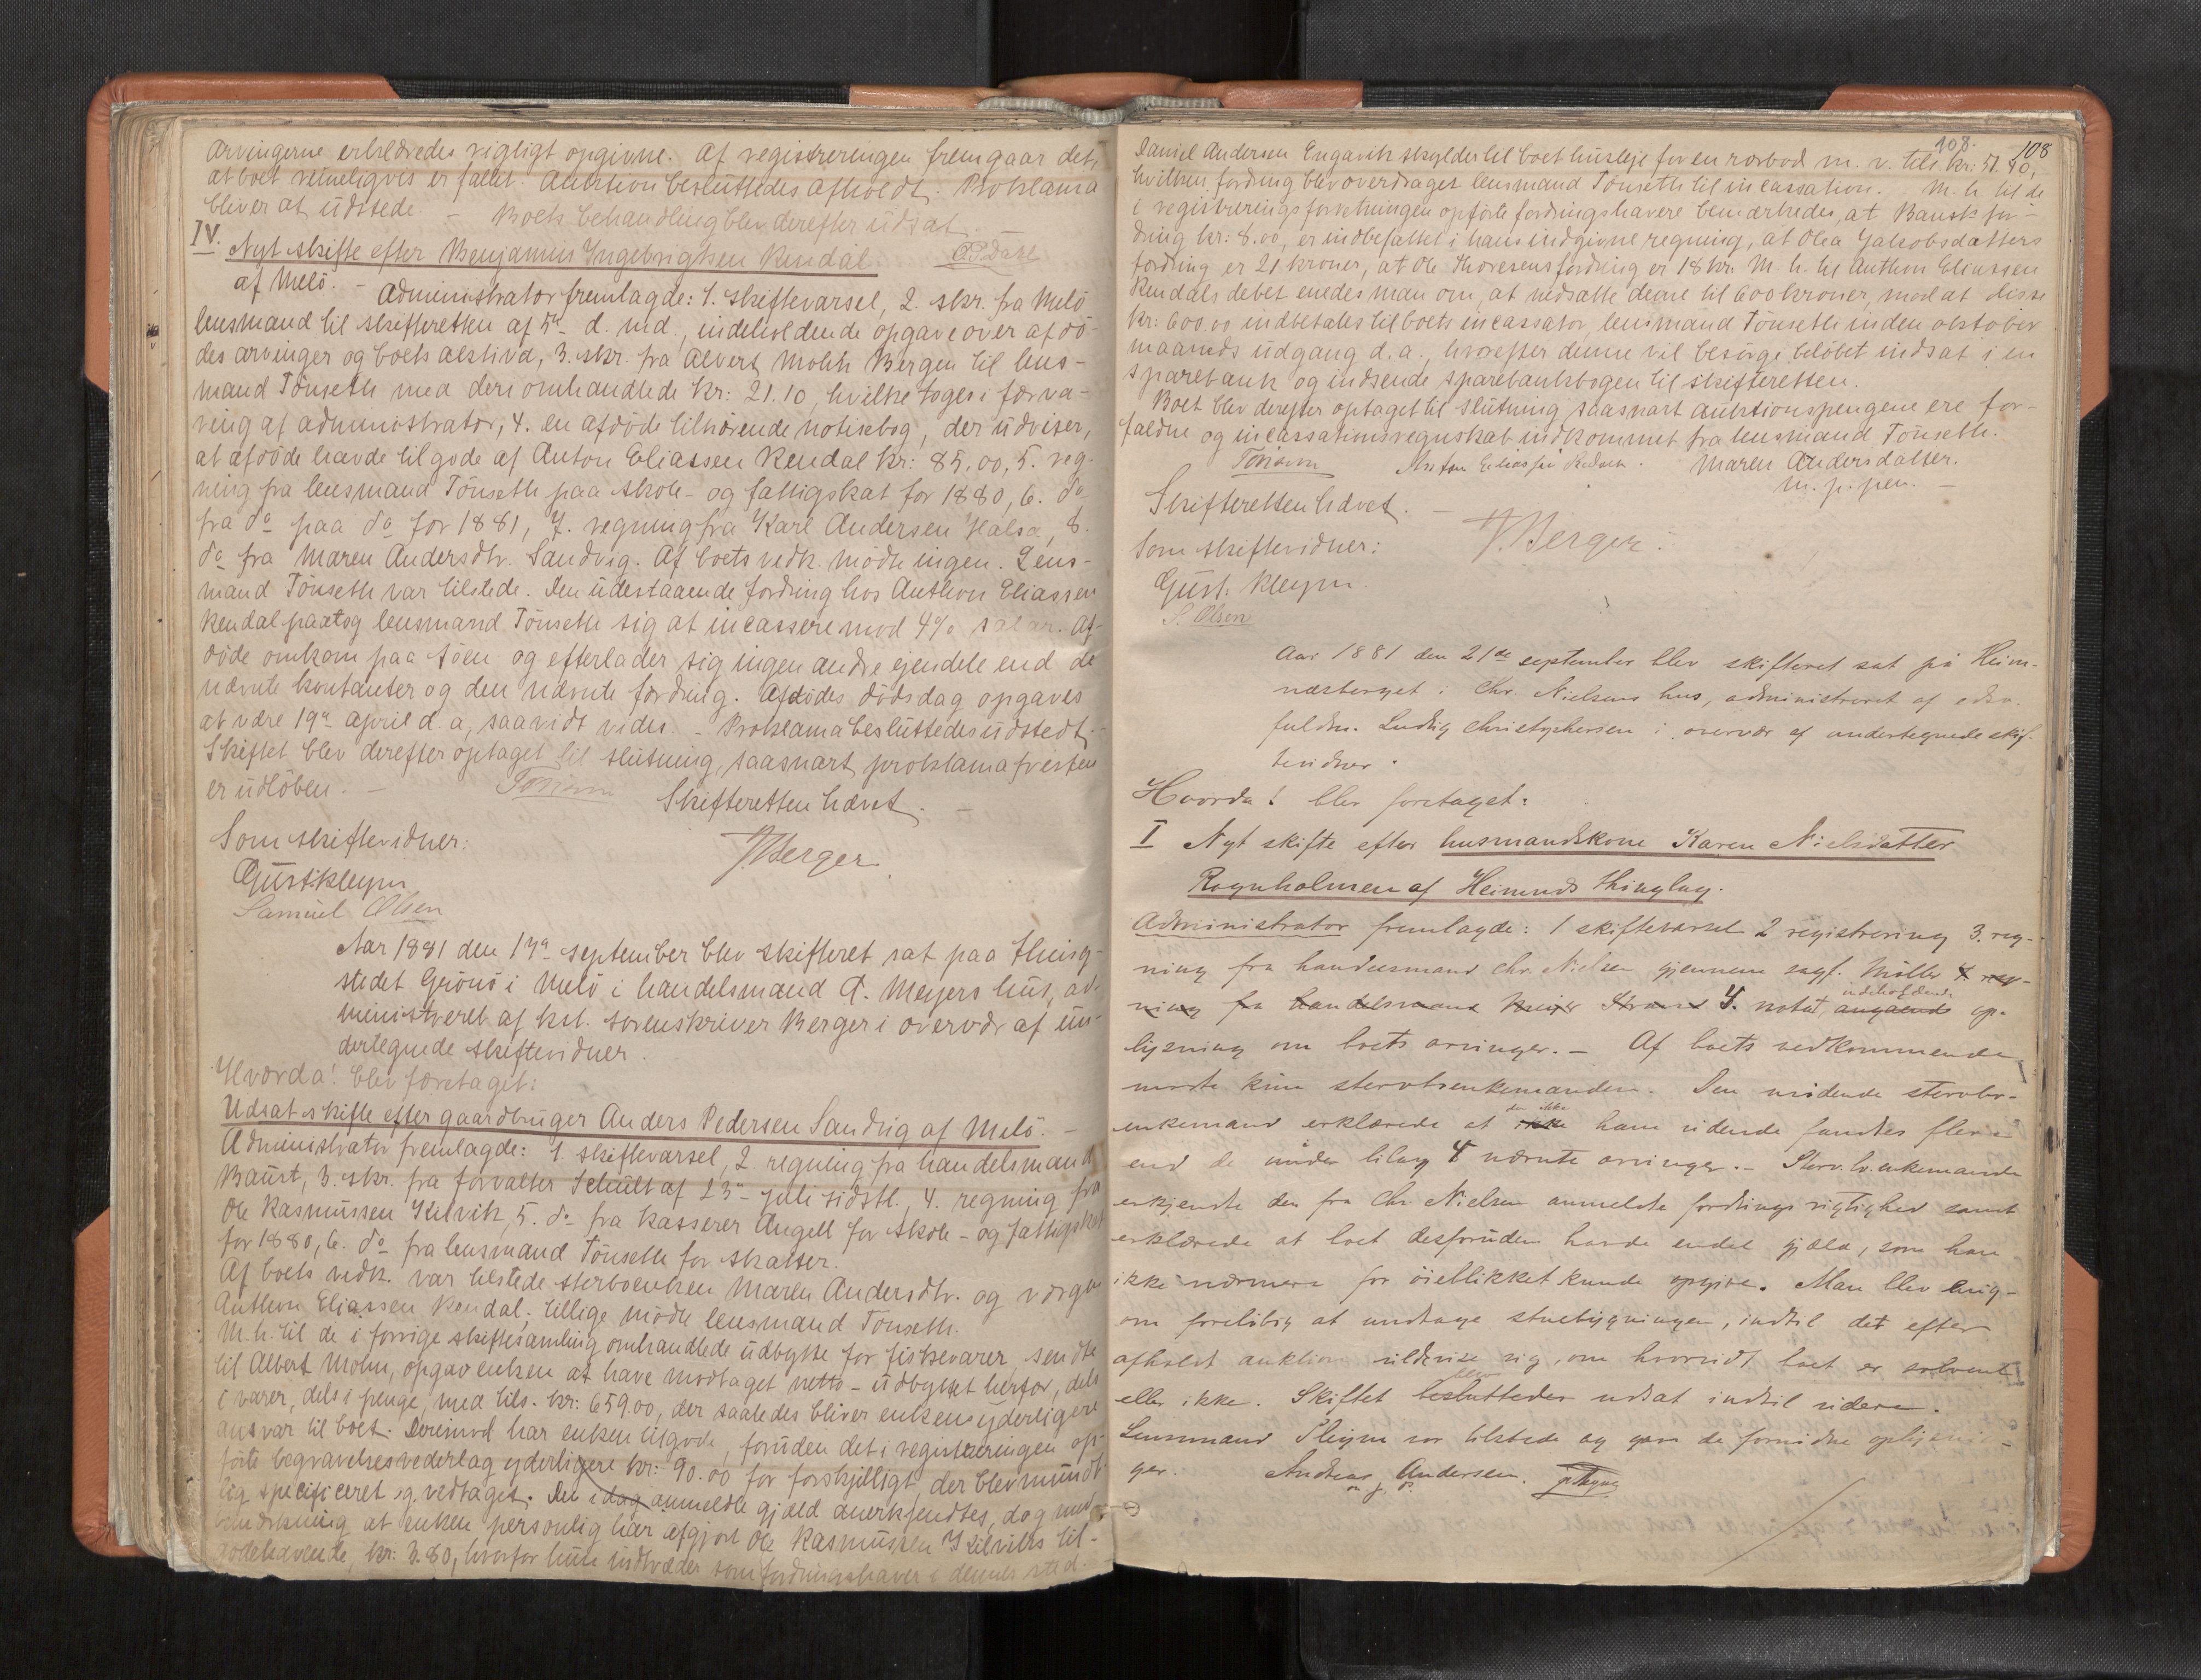 arvingerne erklæredes rigtigt opgivne. Af registreringen fremgaar det,
at boet rimeligvis er fallit. Auktion besluttedes afholdt. Proklama
bliver at udstede – Boets behandling blev derefter udsat.
IV. Nyt skifte efter Benjamin Ingebrigtsen Kendal O P Dahl
af Melö. – Administrator fremlagde: 1. skiftevarsel, 2. skr. fra Melö
lensmand til skifteretten af 5te d. md., indeholdende opgave over afdö-
des arvinger og boets aktiva, 3. skr. fra Alvert Mohn Bergen til lens-
mand Tönseth med deri omhandlede kr: 21.10, hvilke toges i forva-
ring af administrator, 4. en afdöde tilhörende notisebog, der udviser,
at afdöde havde tilgode af Anton Eliassen Kendal kr: 85.00, 5. reg-
ning fra lensmand Tönseth paa skole- og fattigskat for 1880, 6. do
fra do paa do for 1881, 7. regning fra Karl Andersen Halsa, 8.
do fra Maren Andersdtr. Sandvig. Af boets vedk. mödte ingen. Lens-
mand Tönseth var tilstede. Den udestaaende fordring hos Anthon Eliassen
Kendal paatog lensmand Tönseth sig at incassere mod 4% salær. Af-
döde omkom paa söen og efterlader sig ingen andre ejendele end de
nævnte kontanter og den nævnte fordring. Afdödes dödsdag opgaves
at være 19de april d. a, saavidt vides. – Proklama besluttedes udstedt.
Skiftet blev derefter optaget til slutning, saasnart proklamafristen
er udlöben. – Skifteretten hævet. –
Som skiftevidner: Berger
Gust. Kleyn
Samuel Olsen
Aar 1881 den 17de september blev skifteret sat paa thing-
stedet Grönö i Melö i handelsmand A. Meyers hus, ad-
ministreret af kst. sorenskriver Berger i overvær af un-
dertegnede skiftevidner.
Hvorda! blev foretaget:
Udsat skifte efter gaardbruger Anders Pedersen Sandvig af Melö. –
Administrator fremlagde: 1. skiftevarsel, 2. regning fra handelsmand
Baust, 3. skr. fra forvalter Schult af 23de juli sidstl., 4. regning fra
Ole Rasmussen Kilvik, 5. do fra kasserer Angell for skole- og fattigskat
for 1880, 6. do fra lensmand Tönseth for skatter.
Af boets vedk. var tilstede sterboenken Maren Andersdtr. og værgen
Anthon Eliassen Kendal; tillige mödte lensmand Tönseth.
M. h. til de i forrige skiftesamling omhandlede udbytte for fiskevarer sendte
til Albert Mohn, opgav enken at have modtaget netto-udbyttet herfor, dels
i varer, dels i penge, med tils. kr: 659.00, der saaledes bliver enkens yderligere
ansvar til boet. Derimod har enken tilgode, foruden det i registreringen op-
förte begravelsesvederlag yderligere kr: 90.00 for forskjelligt, der blev mundt-
lig specificeret og vedtaget. Den i dag anmeldte gjæld anerkjendtes, dog med
bemærkning at enken personlig har afgjort Ole Rasmussen Kilviks til-
godehavende, kr: 3.80, hvorfor hun indtræder som fordringshaver i dennes sted.
108. 108
Daniel Andersen Engavik skylder til boet husleje for en rorbod m. v. tils. kr: 51.40,
hvilken fordring blev overdraget lensmand Tönseth til incassation. M. h. til de
i registreringsforretningen opförte fordringshavere bemærkedes, at Bausts for-
dring kr: 8.00, er indbefattet i hans indgivne regning, at Olea Jakobsdatters
fordring er 21 kroner, at Ole Thoresens fordring er 18 kr. M. h. til Anthon Eliassen
Kendals debet enedes man om, at nedsætte denne til 600 kroner, mod at disse
kr: 600.00 indbetales til boets incassator, lensmand Tönseth inden oktober
maaneds udgang d. a., hvorefter denne vil besörge belöbet indsat i en
sparebank og indsende sparebankbogen til skifteretten.
Boet blev derefter optaget til slutning saasnart auktionspengene ere for-
faldne og incassationsregnskab indkommet fra lensmand Tönseth.
Anton Eliassen Kendal. Maren Andersdatter.
m. p. pen. –
Skifteretten hævet. –
Som skiftevidner: Berger.
Gust. Kleyn.
S. Olsen
Aar 1881 den 21de september blev skifteret sat på Heim-
næsberget i Chr. Nielsens hus, administreret af edsv.
fuldm. Ludvig Christophersen i overvær af undertegnede skif-
tevidner.
Hvorda! blev foretaget:
I Nyt skifte efter husmandskone Karen Nielsdatter
Rognholmen af Heimnæs thinglag.
Administrator fremlagde: 1 skiftevarsel 2 registrering 3. reg-
ning fra handelsmand Chr. Nielsen gjennem sagf. Möller 4 reg-
ning fra handelsmand Meier Strand 4. notat, angaaende indeholdende op-
lysning om boets arvinger. – Af boets vedkommende
mødte kun stervboenkemanden. Den mødende stervbo-
enkemand erklærede at ikke der ikke ham vidende fandtes flere
end de under bilag 4 nævnte arvinger. – Stervb.enkemanden
erkjendte den fra Chr. Nielsen anmeldte fordrings rigtighed samt
erklærede at boet desforuden havde endel gjæld, som han
ikke nærmere for öieblikket kunde opgive. Man blev enig
om forelöbig at undtage stuebygningen, indtil det efter
afholdt auktion vilde vise sig, om hvorvidt boet er solvent
eller ikke. Skiftet besluttedes blev udsat indtil videre.
Lensmand Pleym var tilstede og gav de fornödne oplysnin-
ger. Andreas Andersen. Pleym
m. f. p.